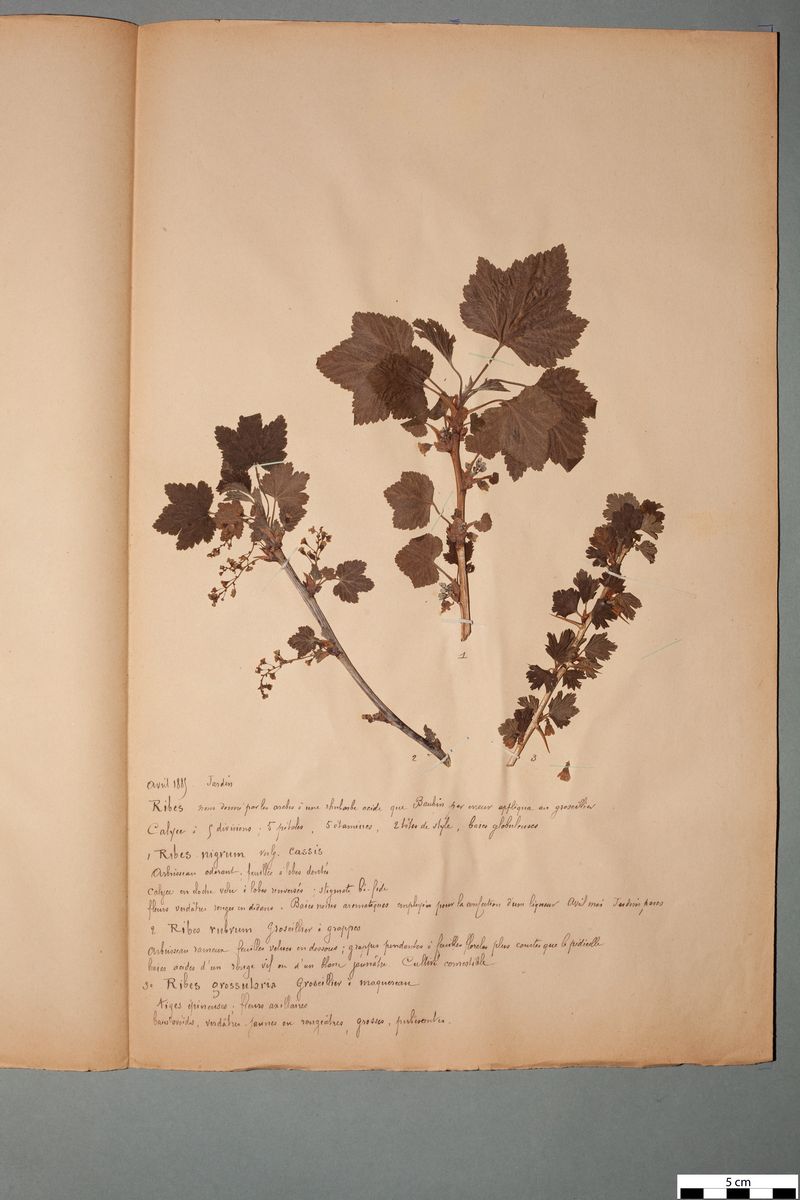 1
2
3
Avril 1885 Jardin
Ribes nom donné par les arabes à une rhubarbe acide que Bauhin par erreur appliqua au groseillier
Calyce à 5 divisions ; 5 pétales, 5 étamines, 2 têtes de style, baies globuleuses
1, Ribes nigrum vulg. Cassis
Arbrisseau odorant, feuilles à lobes dentés
calyce en cloche velu à lobes renversés ; stigmate bi-fide
fleurs verdâtres rouges en dedans. Baies noires aromatiques employées pour la confection d'une liqueur Avril mai Jardins, parcs
2 Ribes rubrum Groseillier à grappes
Arbrisseau rameux feuilles velues en dessous ; grappes pendantes à feuilles florales plus courtes que le pédicelle
baies acides d'un rouge vif ou d'un blanc jaunâtre. Cultivé comestible
3o Ribes grossularia Groseillier à maquereau
Tiges épineuses. fleurs axillaires
baies ovoïdes, verdâtres jaunes ou rougeâtres, grosses, pubescentes.
5 cm